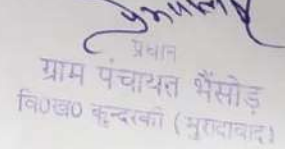 प्रधान
ग्राम पंचायत भैंसोड़
वि०ख० कुन्दरकी (मुरादाबाद)